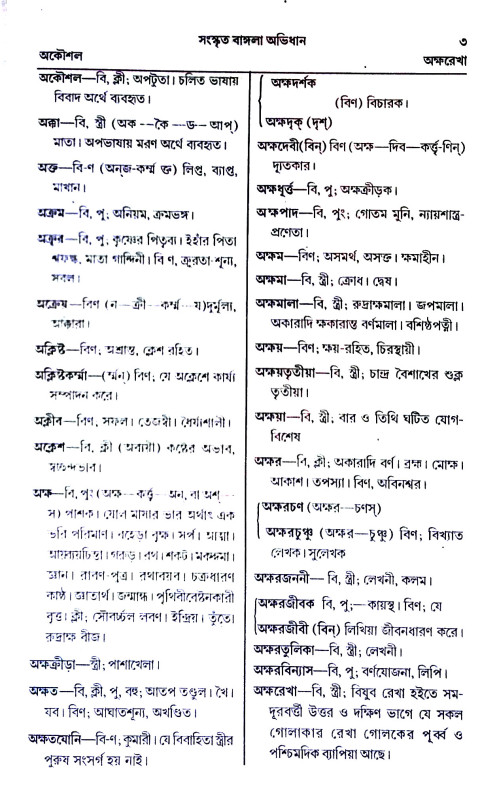 সংস্কৃত বাঙ্গলা অভিধান
৩
অকৌশল
অক্ষরেখা
অকৌশল—বি, ক্লী; অপটুতা। চলিত ভাষায়
বিবাদ অর্থে ব্যবহৃত।
অক্কা—বি, স্ত্রী (অক --কৈ --ড-- আপ্)
মাতা। অপভাষায় মরণ অর্থে ব্যবহৃত।
অক্ত—বি-ণ (অন্‌জ-কর্ম্ম ক্ত) লিপ্ত, ব্যাপ্ত,
মাখান।
অক্রম—বি, পু; অনিয়ম, ক্রমভঙ্গ।
অক্রূর—বি, পু; কৃষ্ণের পিতৃব্য। ইঁহার পিতা
শ্বফল্ক, মাতা গান্দিনী। বি ণ, ক্রূরতা-শূন্য,
সরল।
অক্রেয়—বিণ (ন—ক্রী—কর্ম্ম—য)দুর্মূল্য,
আক্কারা।
অক্লিষ্ট—বিণ; অশ্রান্ত, ক্লেশ রহিত।
অক্লিষ্টকর্ম্মা—(র্ম্মন্) বিণ; যে অক্লেশে কার্য্য
সম্পাদন করে।
অক্লীব—বিণ, সফল। তেজস্বী। ধৈর্য্যশালী।
অক্লেশ—বি, ক্লী (অব্যয়ী) কষ্টের অভাব,
স্বচ্ছন্দভাব।
অক্ষ—বি, পুং (অক্ষ--কর্ত্তৃ--অন, বা অশ্--
স) পাশক। ষোল মাষার ভার অর্থাৎ এক
ভরি পরিমাণ। বহেড়া বৃক্ষ। সর্প। আত্মা।
আয়ব্যয়চিন্তা। গরুড়। রথ। শকট। মকদ্দমা।
জ্ঞান। রাবণ-পুত্র। রথাবয়ব। চক্রধারণ
কাষ্ঠ। জ্ঞাতার্থ। জন্মান্ধ। পৃথিবীবেষ্টনকারী
বৃত্ত। ক্লী; সৌবর্চ্চল লবণ। ইন্দ্রিয়। তুঁতে।
রুদ্রাক্ষ বীজ।
অক্ষক্রীড়া—স্ত্রী; পাশাখেলা।
অক্ষত—বি, ক্লী, পু, বহু; আতপ তণ্ডুল। খৈ।
যব। বিণ; আঘাতশূন্য, অখণ্ডিত।
অক্ষতযোনি—বি-ণ; কুমারী। যে বিবাহিতা স্ত্রীর
পুরুষ সংসর্গ হয় নাই।
অক্ষদর্শক
(বিণ) বিচারক।
অক্ষদৃক্ (দৃশ্)
অক্ষদেবী(বিন্) বিণ (অক্ষ—দিব—কর্ত্তৃ-ণিন্)
দ্যূতকার।
অক্ষধূর্ত্ত—বি, পু; অক্ষক্রীড়ক।
অক্ষপাদ—বি, পুং; গোতম মুনি, ন্যায়শাস্ত্র-
প্রণেতা।
অক্ষম—বিণ; অসমর্থ, অসক্ত। ক্ষমাহীন।
অক্ষমা—বি, স্ত্রী; ক্রোধ। দ্বেষ।
অক্ষমালা—বি, স্ত্রী; রুদ্রাক্ষমালা। জপমালা।
অকারাদি ক্ষকারান্ত বর্ণমালা। বশিষ্ঠপত্নী।
অক্ষয়—বিণ; ক্ষয়-রহিত, চিরস্থায়ী।
অক্ষয়তৃতীয়া—বি, স্ত্রী; চান্দ্র বৈশাখের শুক্ল
তৃতীয়া।
অক্ষয়া—বি, স্ত্রী; বার ও তিথি ঘটিত যোগ-
বিশেষ
অক্ষর—বি, ক্লী; অকারাদি বর্ণ। ব্রহ্ম। মোক্ষ।
আকাশ। তপস্যা। বিণ, অবিনশ্বর।
অক্ষরচণ (অক্ষর—চণস্)
অক্ষরচুঞ্চু (অক্ষর—চুঞ্চু) বিণ; বিখ্যাত
লেখক। সুলেখক
অক্ষরজননী—বি, স্ত্রী; লেখনী, কলম।
অক্ষরজীবক বি, পু;—কায়স্থ। বিণ; যে
অক্ষরজীবী (বিন্) লিখিয়া জীবনধারণ করে।
অক্ষরতুলিকা—বি, স্ত্রী; লেখনী।
অক্ষরবিন্যাস—বি, পু; বর্ণযোজনা, লিপি।
অক্ষরেখা—বি, স্ত্রী; বিষুব রেখা হইতে সম-
দূরবর্ত্তী উত্তর ও দক্ষিণ ভাগে যে সকল
গোলাকার রেখা গোলকের পূর্ব্ব ও
পশ্চিমদিক ব্যাপিয়া আছে।